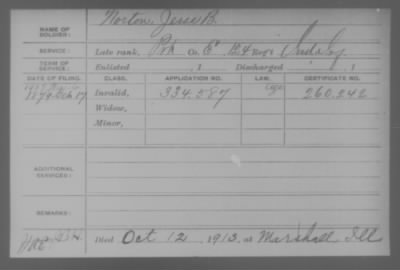 NAME OF SOLDIER: Norton, Jesse B.
SERVICE: Late rank, Pvt Co. E, 124 Reg't Ind. Inf.
TERM OF SERVICE: Enlisted , 1 Discharged , 1
DATE OF FILING. CLASS. APPLICATION NO. LAW. CERTIFICATE NO.
1879 Oct 17 Invalid, 334.587 260.242
Widow,
Minor,
ADDITIONAL SERVICES:
REMARKS:
Died Oct 12, 1913, at Marshall, Ill